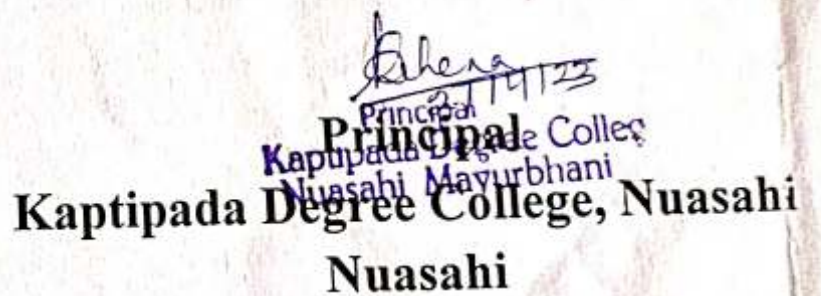 Principal
Kaptipada Degree College
Nuasahi Mayurbhanj
Principal
Kaptipada Degree College, Nuasahi
Nuasahi